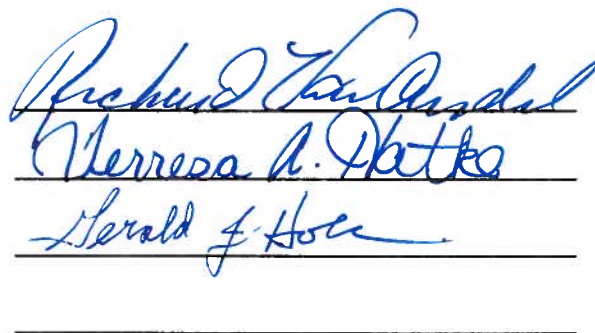 Richard Van Arsdal
Therresa A. Hatke
Gerald J. Hock